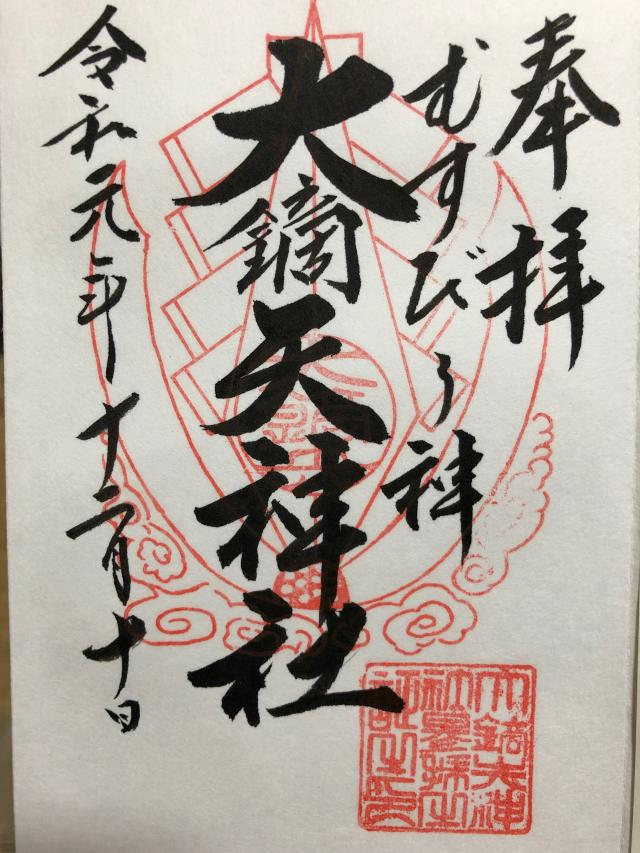 奉拝
むすびの神
大鏑矢神社
令和元年十二月十日